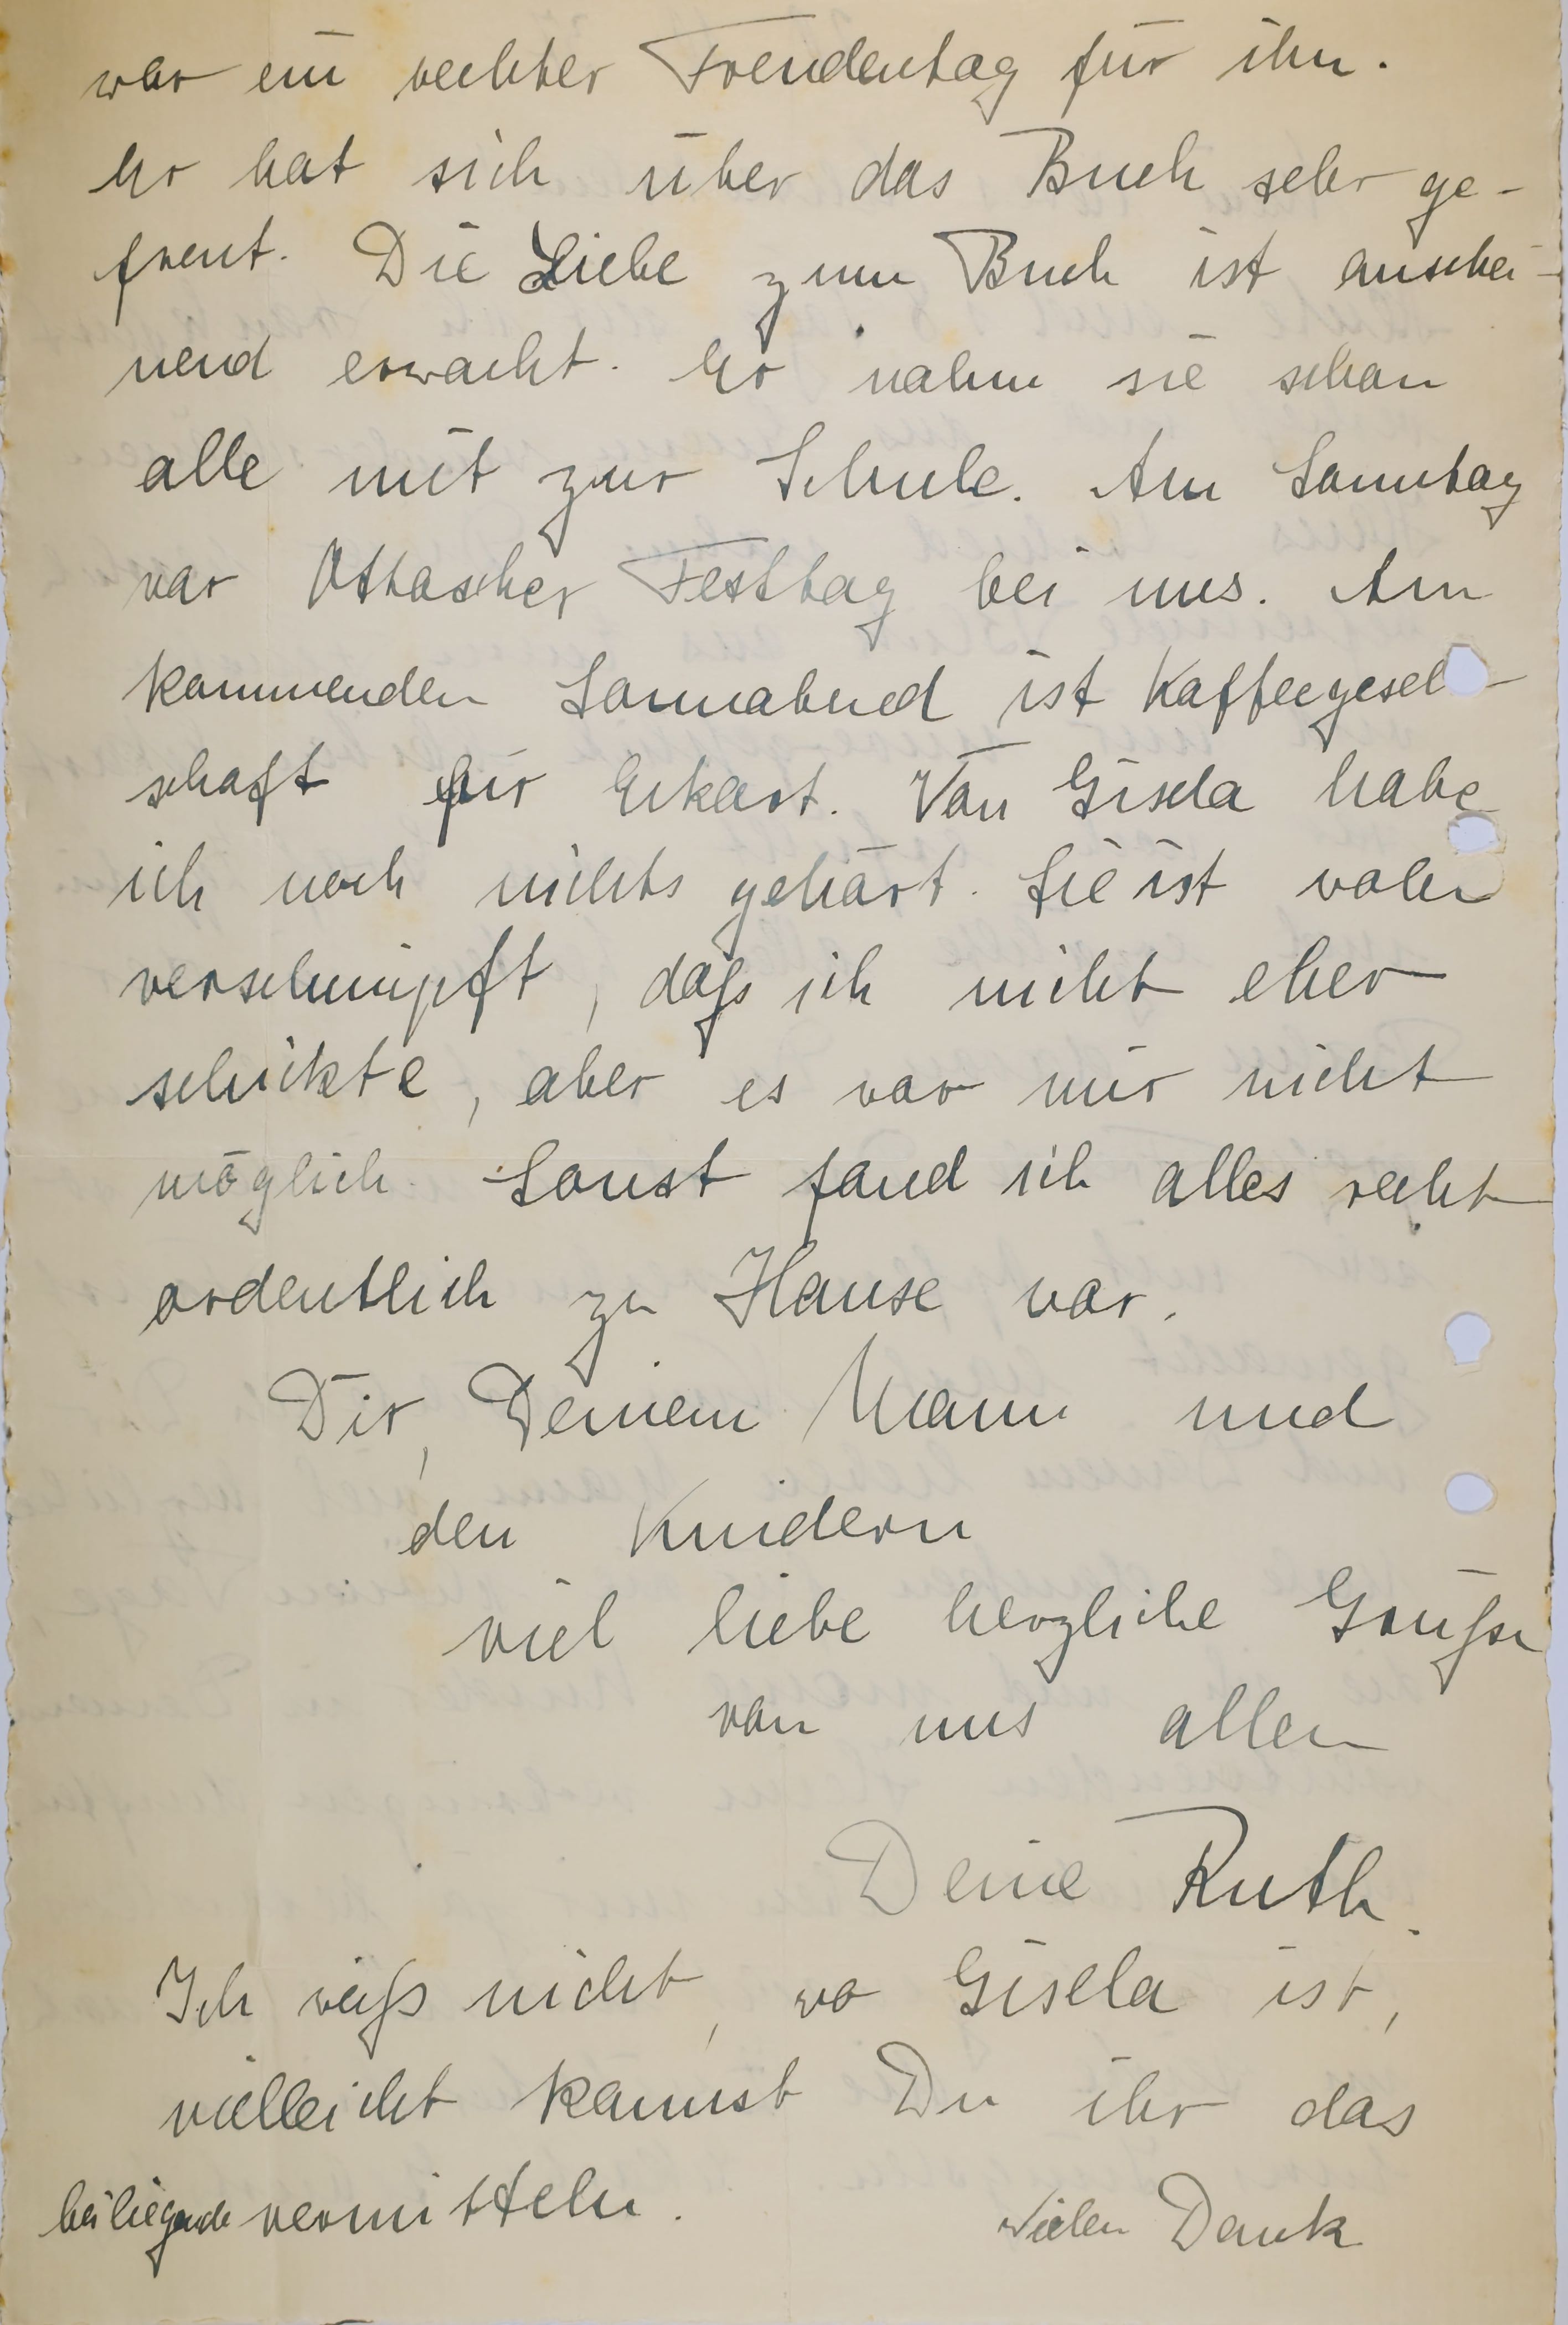 war ein rechter Freudentag für ihn.
Er hat sich über das Buch sehr ge-
freut. Die Liebe zum Buch ist anschei-
nend erwacht. Er nahm sie schon
alle mit zur Schule. Am Sonntag
war Festtag bei uns. Am
kommenden Sonnabend ist Kaffeegesell-
schaft für Eckart. Von Gisela habe
ich noch nichts gehört. Sie ist wohl
verschnupft, daß ich nicht eher
schickte, aber es war mir nicht
möglich. Sonst fand ich alles recht
ordentlich zu Hause vor.
Dir, Deinem Mann und
den Kindern
viel liebe herzliche Grüße
von uns allen
Deine Ruth.
Ich weiß nicht, wo Gisela ist,
vielleicht kannst Du ihr das
beiliegende vermitteln. Vielen Dank